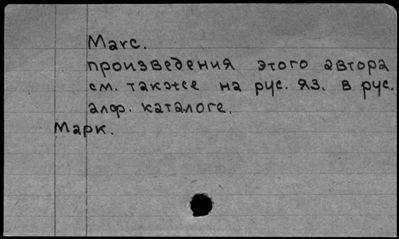 Marc.
произведения этого автора
см. также на рус. яз. в рус.
алф. каталоге.
Марк.